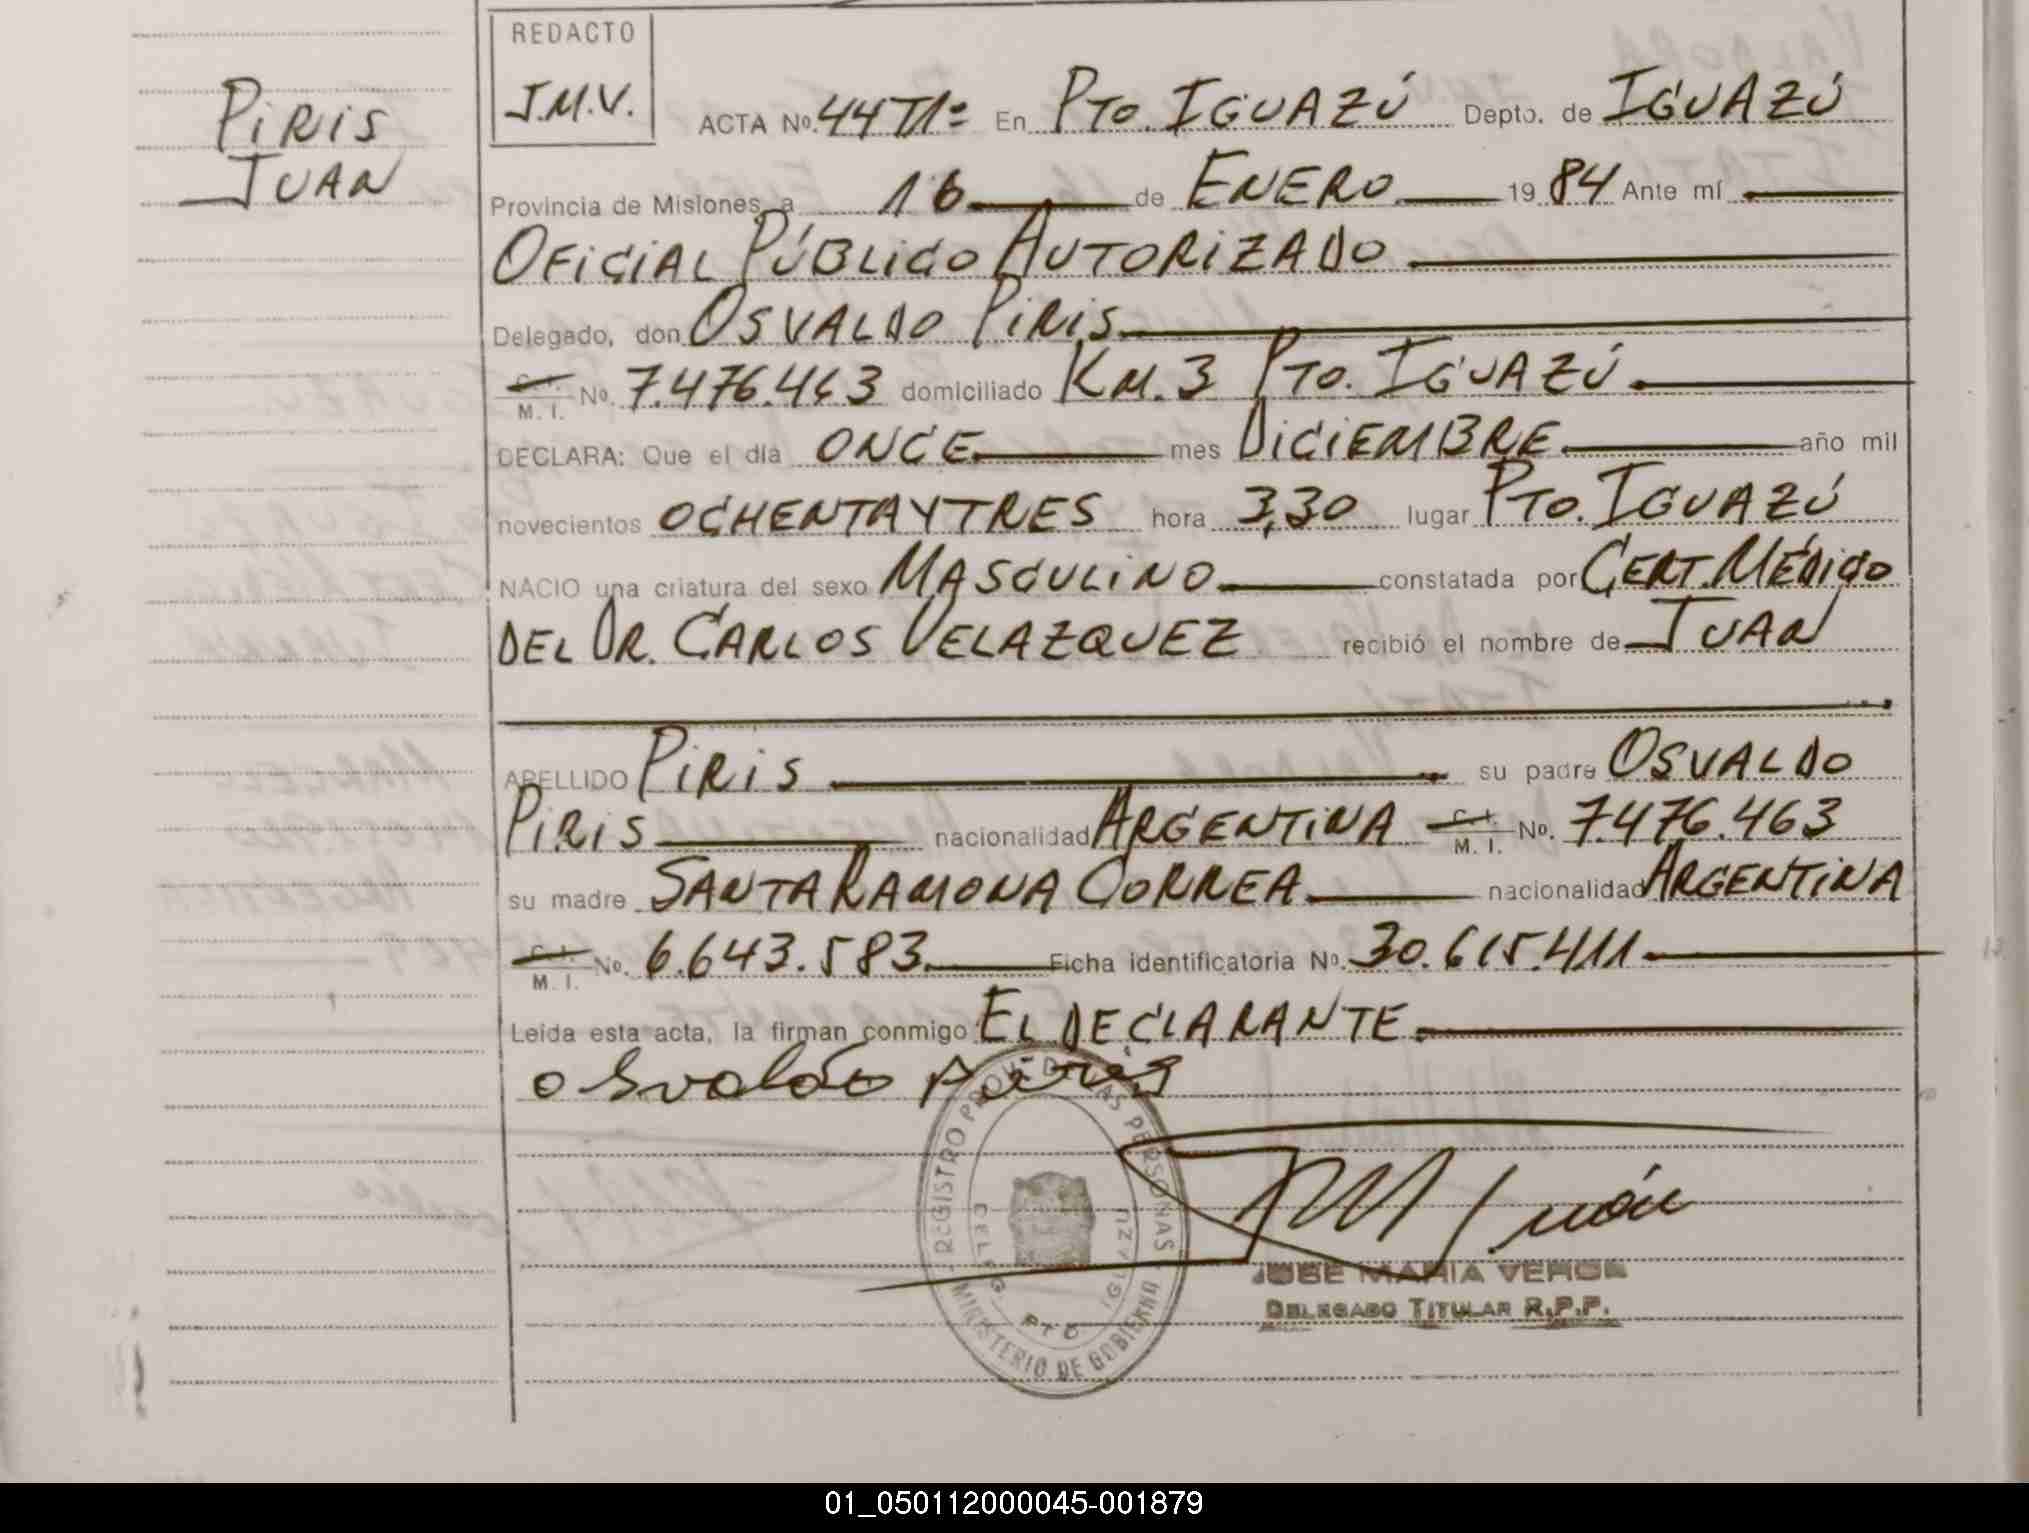 PIRIS
JUAN
REDACTO
J.M.V.
ACTA Nº. 44 T1º En PTO. IGUAZÚ Depto. de IGUAZÚ
Provincia de Misiones, a 16 de ENERO 1984 Ante mí
OFICIAL PÚBLICO AUTORIZADO
Delegado, don OSVALDO PIRIS
C. I. M. I. Nº. 7.476.463 domiciliado KM. 3 PTO. IGUAZÚ.
DECLARA: Que el día ONCE mes DICIEMBRE año mil
novecientos OCHENTA Y TRES hora 3,30 lugar PTO. IGUAZÚ
NACIO una criatura del sexo MASCULINO constatada por CERT. MÉDICO
DEL DR. CARLOS VELAZQUEZ recibió el nombre de JUAN
APELLIDO PIRIS su padre OSVALDO
PIRIS nacionalidad ARGENTINA C. I. M. I. Nº. 7.476.463
su madre SANTA RAMONA CORREA nacionalidad ARGENTINA
C. I. M. I. Nº. 6.643.583 Ficha identificatoria Nº. 30.615.411
Leída esta acta, la firman conmigo: EL DECLARANTE.
osvaldo piris
REGISTRO PROV. DE LAS PERSONAS
DELEG. PTO. IGUAZU
MINISTERIO DE GOBIERNO
JOSE MARIA VERON
DELEGADO TITULAR R.P.P.
01_050112000045-001879